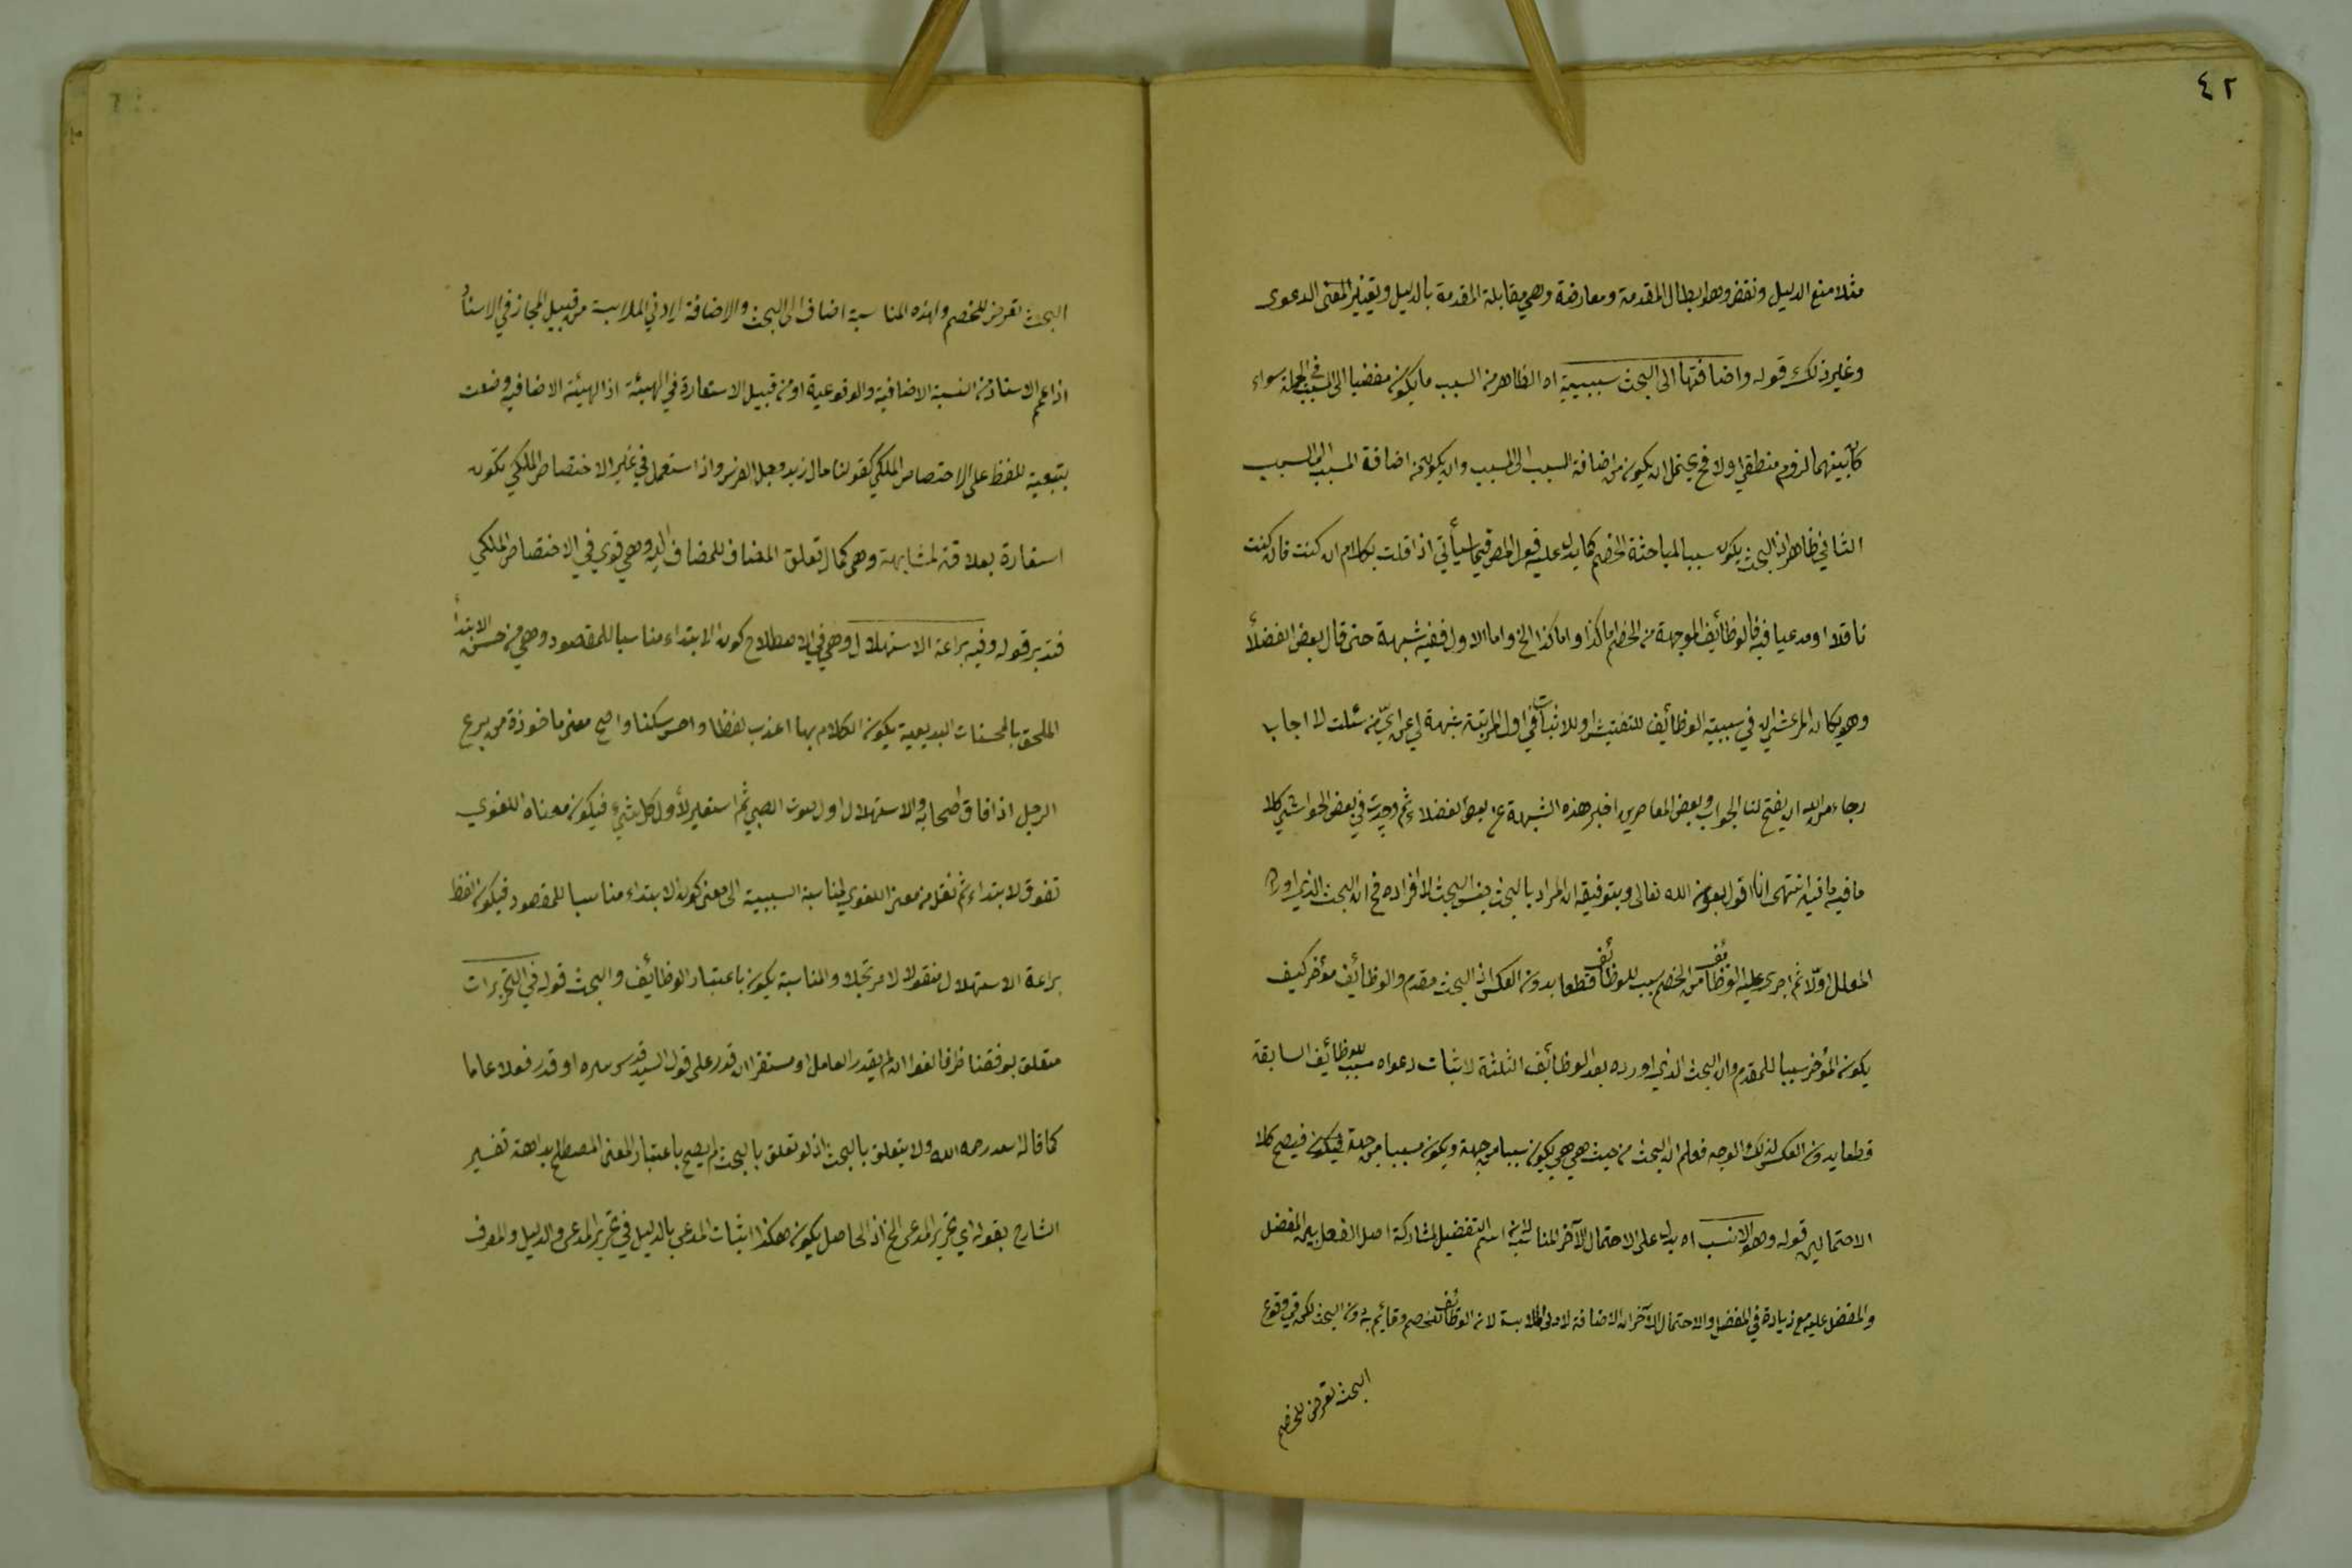 ٤٢
مثلا منع الدليل ونقض وهو ابطال المقدمة ومعارضة وهي مقابلة المقدمة بالدليل وتغيير المغنى الدعوى
وغير ذلك قوله واضافتها الى البحث سببية اه الظاهر من السبب ما يكون مفضيا الى المسبب في الجملة سواء
كان بينهما لزوم منطقي او لا فح يحتمل ان يكون من اضافة السبب الى المسبب وان يكون من اضافة المسبب الى السبب
الثاني ظاهر اذ البحث يكون سببا لمباحثة الخصم كما يدل عليه قول المص فيما سيأتي اذا قلت بكلام ان كنت فان كنت
ناقلا او مدعيا فيه فالوظائف الموجهة من الخصم اما كذا واما كذا الخ واما الاول ففيه شبهة حتى قال بعض الفضلأ
وهو يكان المرعشي ان في سببية الوظائف للتفتيش او للاثبات في اول المرتبة شبهة سئلت لا اجاب
رجاء من الله ان يفتح لنا الجواب وبعض المعاصرين اخبر هذه الشبهة عن بعض الفضلاء ثم وجدت في بعض الحواشي كلا
ما فيه ما فيه انتهى انا اقول بعون الله تعالى وبتوفيقه ان المراد بالبحث جنس البحث لا افراده فح ان البحث الذي اورده
المعلل اولا ثم اجرى عليه الوظائف من الخصم سبب للوظائف قطعا بدون العكس اذ البحث مقدم والوظائف مؤخر كيف
يكون المؤخر سببا للمقدم وان البحث الذي اورده بعد الوظائف الثلثة لاثبات دعواه مسبب للوظائف السابقة
قطعا بدون العكس لذلك الوجه فعلم ان البحث من حيث هي هي يكون سببا من جهة ويكون مسببا من جهة فيكون فيصح كلا
الاحتمالين قوله وهو الانسب اه يدل على الاحتمال الآخر المناسب لانه اسم التفضيل لمشاركة اصل الفعل بين المفضل
والمفضل عليه مع زيادة في المفضل والاحتمال الآخر ان الاضافة لادنى الملابسة لان الوظائف للخصم وقائم به دون البحث لكن في وقوع
البحث تعرض للخصم
البحث تعرض للخصم ولهذه المناسبة اضاف الى البحث والاضافة لادنى الملابسة من قبيل المجاز في الاسناد
اذا عمم الاسناد من النسبة الاضافية والوقوعية او من قبيل الاستعارة في الهيئة اذ الهيئة الاضافية وضعت
بتبعية للفظ على الاختصاص الملكي كقولنا مال زيد وجل الفرس واذا استعمل في غير الاختصاص الملكي تكون
استعارة بعلاقة المشابهة وهو كمال تعلق المضاف للمضاف اليه وهي قوي في الاختصاص الملكي
فتدبر قوله وفيه براعة الاستهلال وهي في الاصطلاح كون الابتداء مناسبا للمقصود وهي من حسن الابتدأ
الملحق بالمحسنات البديعية يكون الكلام بها اعذب لفظا واحسن سبكا واصح معنى ماخوذة من برع
الرجل اذا فاق اصحابه والاستهلال اول صوت الصبي ثم استعير لأول كل شيء فيكون معناه اللغوي
تفوق الابتداء ثم نقل من معنى اللغوي لمناسبة السببية الى معنى كون الابتداء مناسبا للمقصود فيكون لفظ
براعة الاستهلال منقولا لا مرتجلا والمناسبة يكون باعتبار الوظائف والبحث قوله في التحريرات
متعلق بوفقنا ظرفا لغوا ان لم يقدر العامل او مستقرا ان قدر على قول السيد قدس سره او قدر فعلا عاما
كما قاله سعد رحمه الله ولا يتعلق بالبحث اذ لو تعلق بالبحث لم يصح باعتبار المعنى المصطلح بداهة تفسير
الشارح بقوله اي تحرير المدعى الخ اذ الحاصل يكون هكذا اثبات المدعى بالدليل في تحرير المدعى والدليل والمعرف